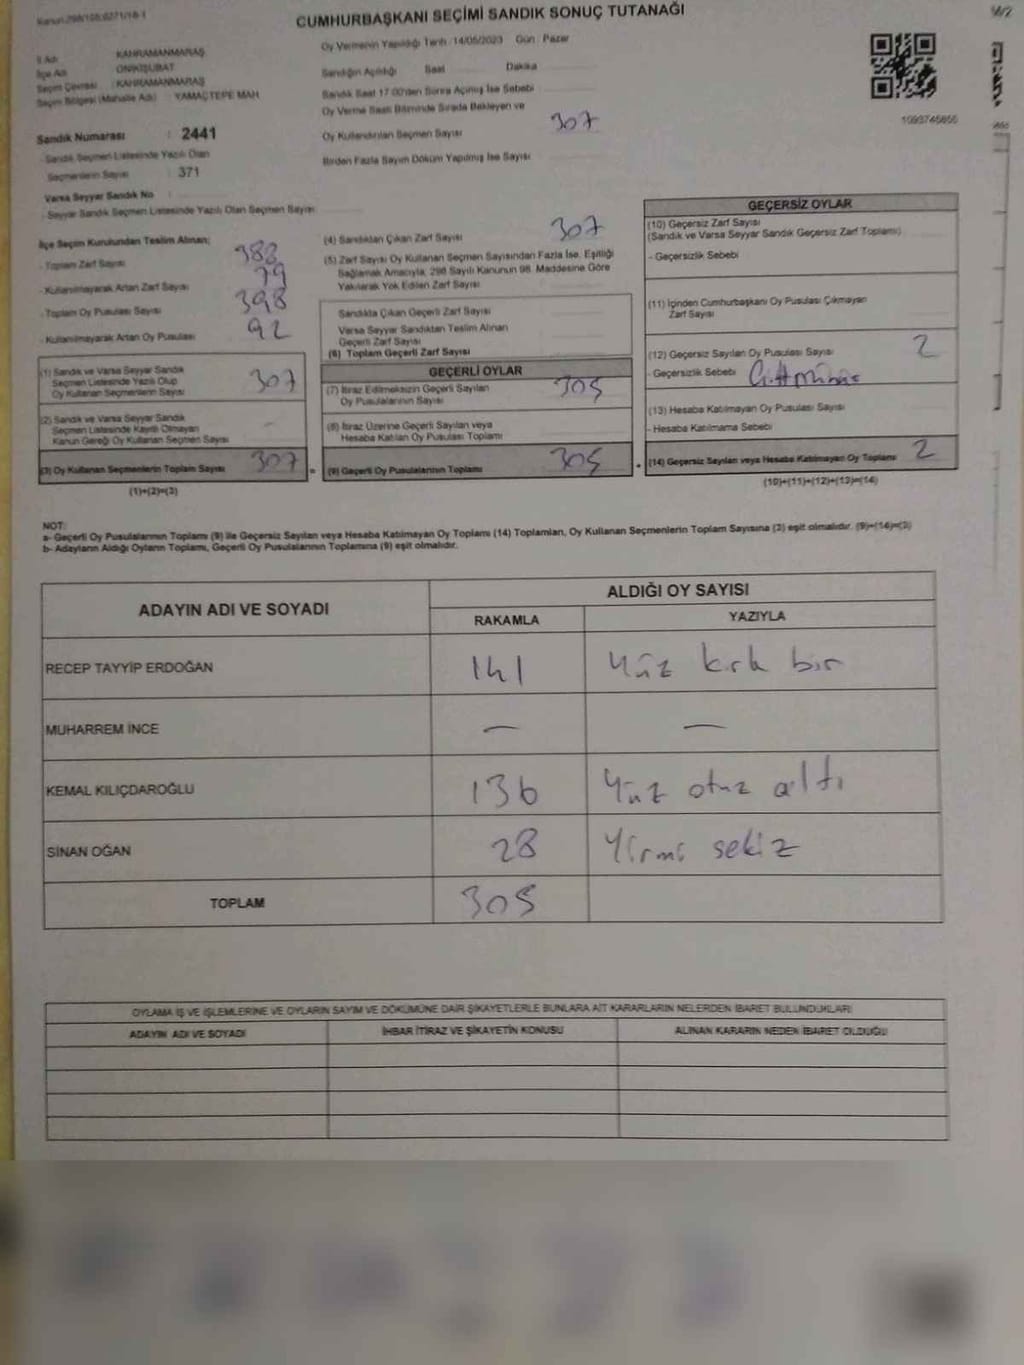 CUMHURBAŞKANI SEÇİMİ SANDIK SONUÇ TUTANAĞI
İl Adı : KAHRAMANMARAŞ
İlçe Adı : ONİKİŞUBAT
Seçim Çevresi : KAHRAMANMARAŞ
Seçim Bölgesi (Mahalle Adı) : YAMAÇTEPE MAH
Sandık Numarası : 2441
- Sandık Seçmen Listesinde Yazılı Olan
Seçmenlerin Sayısı : 371
Varsa Seyyar Sandık No :
- Seyyar Sandık Seçmen Listesinde Yazılı Olan Seçmen Sayısı
Oy Vermenin Yapıldığı Tarih : 14/05/2023 Gün : Pazar
Sandığın Açıldığı Saat Dakika
Sandık Saat 17:00'den Sonra Açılmış İse Sebebi
Oy Verme Saati Bitiminde Sırada Bekleyen ve
Oy Kullandırılan Seçmen Sayısı 307
Birden Fazla Sayım Döküm Yapılmış İse Sayısı
1093745855
İlçe Seçim Kurulundan Teslim Alınan;
- Toplam Zarf Sayısı 383
- Kullanılmayarak Artan Zarf Sayısı 79
- Toplam Oy Pusulası Sayısı 398
- Kullanılmayarak Artan Oy Pusulası 92
(1) Sandık ve Varsa Seyyar Sandık
Seçmen Listesinde Yazılı Olup
Oy Kullanan Seçmenlerin Sayısı 307
(2) Sandık ve Varsa Seyyar Sandık
Seçmen Listesinde Kayıtlı Olmayan
Kanun Gereği Oy Kullanan Seçmen Sayısı -
(3) Oy Kullanan Seçmenlerin Toplam Sayısı 307
(1)+(2)=(3)
(4) Sandıktan Çıkan Zarf Sayısı 307
(5) Zarf Sayısı Oy Kullanan Seçmen Sayısından Fazla İse, Eşitliği
Sağlamak Amacıyla, 298 Sayılı Kanunun 98. Maddesine Göre
Yakılarak Yok Edilen Zarf Sayısı
Sandıkta Çıkan Geçerli Zarf Sayısı
Varsa Seyyar Sandıktan Teslim Alınan
Geçerli Zarf Sayısı
(6) Toplam Geçerli Zarf Sayısı
GEÇERLİ OYLAR
(7) İtiraz Edilmeksizin Geçerli Sayılan
Oy Pusulalarının Sayısı 305
(8) İtiraz Üzerine Geçerli Sayılan veya
Hesaba Katılan Oy Pusulası Toplamı
= (9) Geçerli Oy Pusulalarının Toplamı 305
GEÇERSİZ OYLAR
(10) Geçersiz Zarf Sayısı
(Sandık ve Varsa Seyyar Sandık Geçersiz Zarf Toplamı)
- Geçersizlik Sebebi
(11) İçinden Cumhurbaşkanı Oy Pusulası Çıkmayan
Zarf Sayısı
(12) Geçersiz Sayılan Oy Pusulası Sayısı 2
- Geçersizlik Sebebi
(13) Hesaba Katılmayan Oy Pusulası Sayısı
- Hesaba Katılmama Sebebi
+ (14) Geçersiz Sayılan veya Hesaba Katılmayan Oy Toplamı 2
(10)+(11)+(12)+(13)=(14)
NOT:
a- Geçerli Oy Pusulalarının Toplamı (9) ile Geçersiz Sayılan veya Hesaba Katılmayan Oy Toplamı (14) Toplamları, Oy Kullanan Seçmenlerin Toplam Sayısına (3) eşit olmalıdır. (9)+(14)=(3)
b- Adayların Aldığı Oyların Toplamı, Geçerli Oy Pusulalarının Toplamına (9) eşit olmalıdır.
ADAYIN ADI VE SOYADI ALDIĞI OY SAYISI
RAKAMLA YAZIYLA
RECEP TAYYİP ERDOĞAN 141 Yüz kırk bir
MUHARREM İNCE — —
KEMAL KILIÇDAROĞLU 136 Yüz otuz altı
SİNAN OĞAN 28 Yirmi sekiz
TOPLAM 305
OYLAMA İŞ VE İŞLEMLERİNE VE OYLARIN SAYIM VE DÖKÜMÜNE DAİR ŞİKAYETLERLE BUNLARA AİT KARARLARIN NELERDEN İBARET BULUNDUKLARI
ADAYIN ADI VE SOYADI İHBAR İTİRAZ VE ŞİKAYETİN KONUSU ALINAN KARARIN NEDEN İBARET OLDUĞU